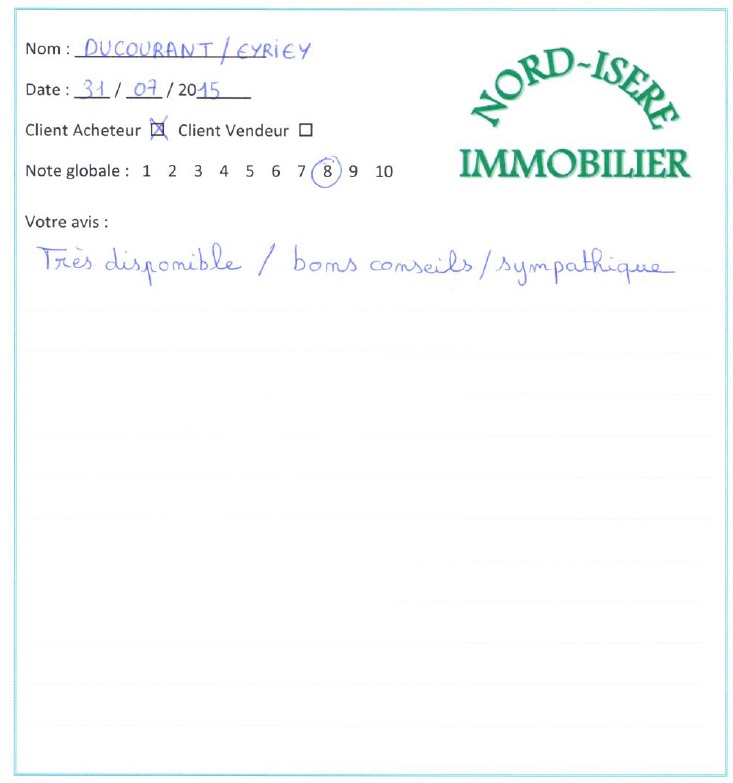 Nom : DUCOURANT / EYRIEY
Date : 31 / 07 / 2015
Client Acheteur ☒ Client Vendeur ☐
Note globale : 1 2 3 4 5 6 7 8 9 10
NORD-ISERE
IMMOBILIER
Votre avis :
Très disponible / bons conseils / sympathique